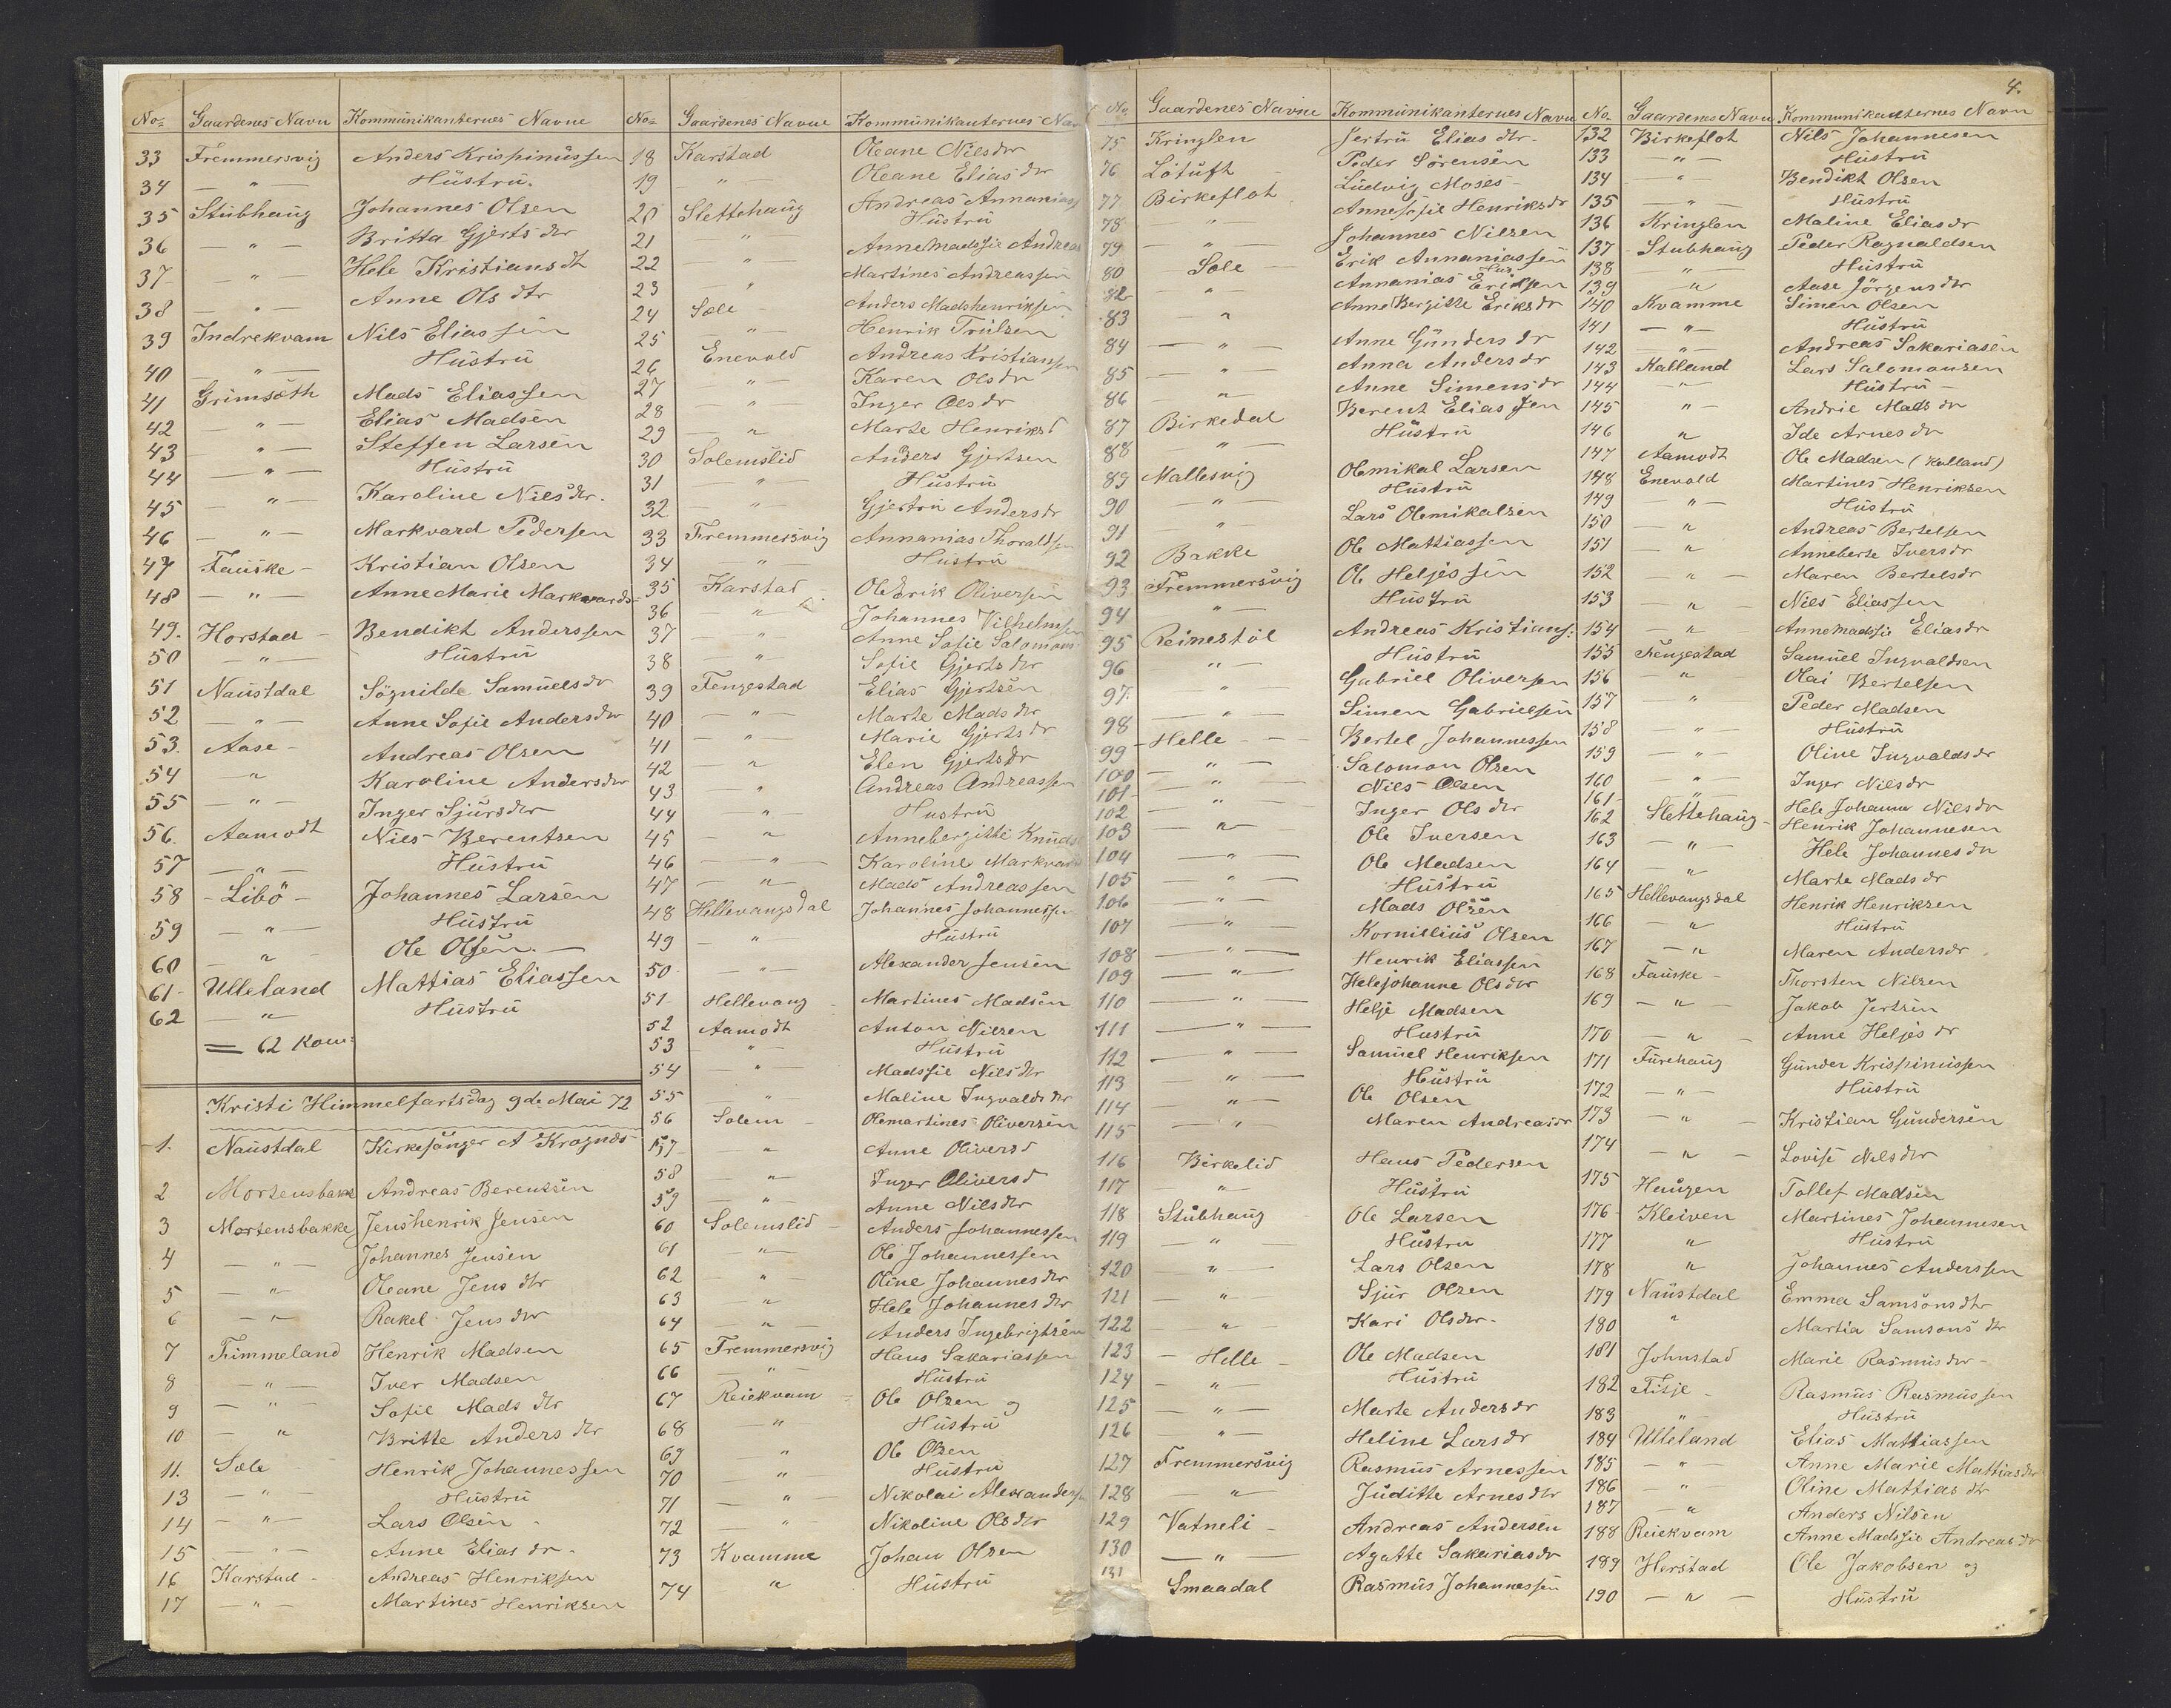 No. Gaardenes Navn Kommunikanternes Navne
33 Fremmersvig Anders Krispinussen
34 — " — Hustru
35 Stubhaug Johannes Olsen
36 — " — Britta Gjerts dtr
37 — " — Hele Kristians dtr
38 — " — Anne Ols dtr
39 Indrekvam Nils Eliassen
40 — " — Hustru
41 Grimsøth Mads Eliassen
42 — " — Elias Madsen
43 — " — Steffen Larsen
44 — " — Hustru
45 — " — Karoline Nils dtr.
46 — " — Markvard Pedersen
47 Fauske — Kristian Olsen
48 — " — AnneMarie Markvards-
49. Horstad — Bendikt Anderssen
50 — " — Hustru
51 Naustdal Sögnilde Samuelsdr
52 — " — Anne Sofie Andersdtr
53. Aase — Andreas Olsen
54 — " Karoline Andersdtr
55 — " — Inger Sjursdtr
56. Aamodt Nils Berentsen
57 — " — Hustru
58 - Libö - Johannes Larsen
59 — " — Hustru
60 — " — Ole Olsen. —
61- Ulleland Mattias Eliassen
62 — " — Hustru
= 62 Kom:
Kristi Himmelfartsdag 9de Mai 72
1. Naustdal Kirkesanger A Krognæs
2 Mortensbakke Andreas Berentsen
3 Mortensbakke Jenshenrik Jensen
4 — " — Johannes Jensen
5 — " Oleane Jens dtr
6 — " — Rakel Jens dtr
7 Timmeland Henrik Madsen
8 — " — Iver Madsen
9 — " — Sofie Mads dtr
10 — " Britte Anders dtr
11. Sæle Henrik Johannessen
13 — " — Hustru
14 — " — Lars Olsen
15 — " — Anne Elias dr.
16 Karstad - Andreas Henriksen
17 — " — Martines Henriksen
No. Gaardenes Navne Kommunikanternes Nav
18 Karstad Oleane Nils dtr
19 — " — Oleane Elias dtr
20 Slettehaug Andreas Annanias
21 " — Hustru
22 — " — Annemadssie Andreas
23 " Martines Andreassen
24 Sæle Anders Madshenriksen
25 — " — Henrik Trulsen
26 Enevold Andreas Kristiansen
27 " — Karen Ols dtr
28 " — Inger Ols dr
29 — " Marte Henriksd
30 Solemslid Anders Gjertsen
31 — " — Hustru
32 — " — Gjertru Anders dr
33 Fremmersvig Annanias Thoraldsen
34 " Hustru
35 Karstad Ole Erik Oliversen
36 " — Johannes Vilhelmsen
37 — " Anne Sofie Salomons
38 — " Sofie Gjerts dtr
39 Tengestad Elias Gjertsen
40 — " — Marte Mads dtr
41 — " — Marie Gjerts dr
42 — " Elen Gjerts dr
43 — " Andreas Andreassen
44 " — Hustru
45 — " Annebergitte Knuds
46 — " — Karoline Markvard
47 — " — Mads Andreassen
48 Hellevangsdal Johannes Johannessen
49 — " Hustru
50 — " — Alexander Jensen
51 Hellevang Martines Madsen
52 Aamodt Anton Nilsen
53 — " — Hustru
54 — " — Madssie Nils dtr
55 — " Maline Ingvalds dtr
56 Solem — Olemartines Oliversen
57 — " Anne Olivers d
58 — " — Inger Olivers d
59 — " — Anne Nils dtr
60 Solemslid — Anders Johannessen
61 " — Ole Johannessen
62 " — Oline Johannes dtr
63 " Hele Johannes dtr
64 — " — Anders Ingebrigtsen
65 Fremmersvig Hans Sakariassen
66 — " — Hustru
67 Reiekvam — Ole Olsen og
68 — " Hustru
69 " Ole Olsen
70 " Hustru
71 — " Nikolai Alexandersen
72 — " Nikoline Ols dtr
73 Kvamme Johan Olsen
74 " Hustru
4.
No. Gaardenes Navne Kommunikanternes Navn
75 Kringlen Jertru Elias dtr.
76 Lötuft — Peder Sörensen
77 Birkeflot Ludvig Moses -
78 " Annessie Henriksdr
79 — " — Johannes Nilsen
80 Sæle — Erik Annaniassen
82 — " — Annanias Eriksen Hus
83 — " Anne Bergitte Eriks dr
84 — " — Anne Gunders dr
85 — " — Anna Anders dr
86 — " Anne Simens dr
87 Birkedal Berent Eliassen
88 " — Hustru
89 Mallesvig Olemikal Larsen
90 — " Hustru
91 " Lars Olemikalsen
92 Bakke Ole Mattiassen
93 Fremmersvig Ole Heljessen
94 " — Hustru
95 Reinestöl Andreas Kristians:
96 " — Hustru
97. — " — Gabriel Oliversen
98 — " — Simen Gabrielsen
99 - Helle — Bertel Johannessen
100 — " — Salomon Olsen
101 — " Nils Olsen
102 — " — Inger Ols dtr
103 — " — Ole Iversen
104 — " — Ole Madsen
105 — " — Hustru
106 — " — Mads Olsen
107 — " — Kornillius Olsen
108 — " — Henrik Eliassen
109 — " — Helejohanne Ols dtr
110 — " — Helje Madsen
111 — " — Hustru
112 — " — Samuel Henriksen
113 — " — Hustru
114 — " — Ole Olsen
115 — " Maren Andreasdr
116 Birkelid Hans Pedersen
117 — " Hustru
118 Stubhaug Ole Larsen
119 — " — Hustru
120 — " — Lars Olsen
121 — " — Sjur Olsen
122 — " — Kari Olsdtr.
123 — Helle — Ole Madsen
124 — " — Hustru
125 — " — Marte Anders dr
126 — " — Heline Lars dr
127 Fremmersvig Rasmus Arnessen
128 — " — Juditte Arnes dtr
129 Vatneli — Andreas Andersen
130 — " — Agatte Sakariasdr
131 Smaadal Rasmus Johannessen
No. Gaardenes Navn Kommunikanternes Navn
132 Birkeflot Nils Johannesen
133 — " — Hustru
134 — " Bendikt Olsen
135 — " — Hustru
136 Kringlen Maline Elias dr
137 - Stubhaug Peder Ragnaldsen
138 " — Hustru
139 — " Aase Jörgens dtr
140 Kvamme Simen Olsen
141 — " — Hustru
142 — " — Andreas Sakariasen
143 Kalland Lars Salomonsen
144 — " Hustru —
145 " — Andrie Mads dr
146 " Ide Arnes dr
147 Aamodt Ole Madsen (Kalland)
148 Enevold Martines Henriksen
149 " — Hustru
150 — " Andreas Bertelsen
151 — " Anneberte Ivers dr
152 " — Maren Bertelsdr
153 — " — Nils Eliassen
154 — " — Annemadssie Elias dr
155 Tengestad Samuel Ingvaldsen
156 — " Olai Bertelsen
157 " Peder Madsen
158 — " — Hustru
159 — " Oline Ingvalds dr
160 — " — Inger Nils dr
161 — " — Hele Johanne Nils dr
162 Slettehaug — Henrik Johannesen
163 — " — Hele Johannes dr
164 — " Marte Mads dr
165 Hellevangsdal Henrik Henriksen
166 " Hustru
167 — " Maren Anders dr
168 Fauske — Thorsten Nilsen
169 — " — Jakob Jertsen
170 — " — Anne Heljes dr
171 Furehaug Gunder Krispinussen
172 — " — Hustru
173 — " Kristian Gundersen
174 — " — Lovise Nils dtr
175 Haugen Tollef Madsen
176 Kleiven Martines Johannesen
177 " Hustru
178 " Johannes Anderssen
179 Naustdal Emma Samsons dtr
180 " Martia Samsons dtr
181 Johnstad Marie Rasmus dtr —
182 Tisje — Rasmus Rasmussen
183 " Hustru
184 Ulleland Elias Mattiassen
185 — " — Anne Marie Mattiasdtr
186 — " Oline Mattias dtr
187 — " Anders Nilsen
188 Reiekvam Anne Madssie Andreas dr
189 Herstad Ole Jakobsen og
190 — " — Hustru